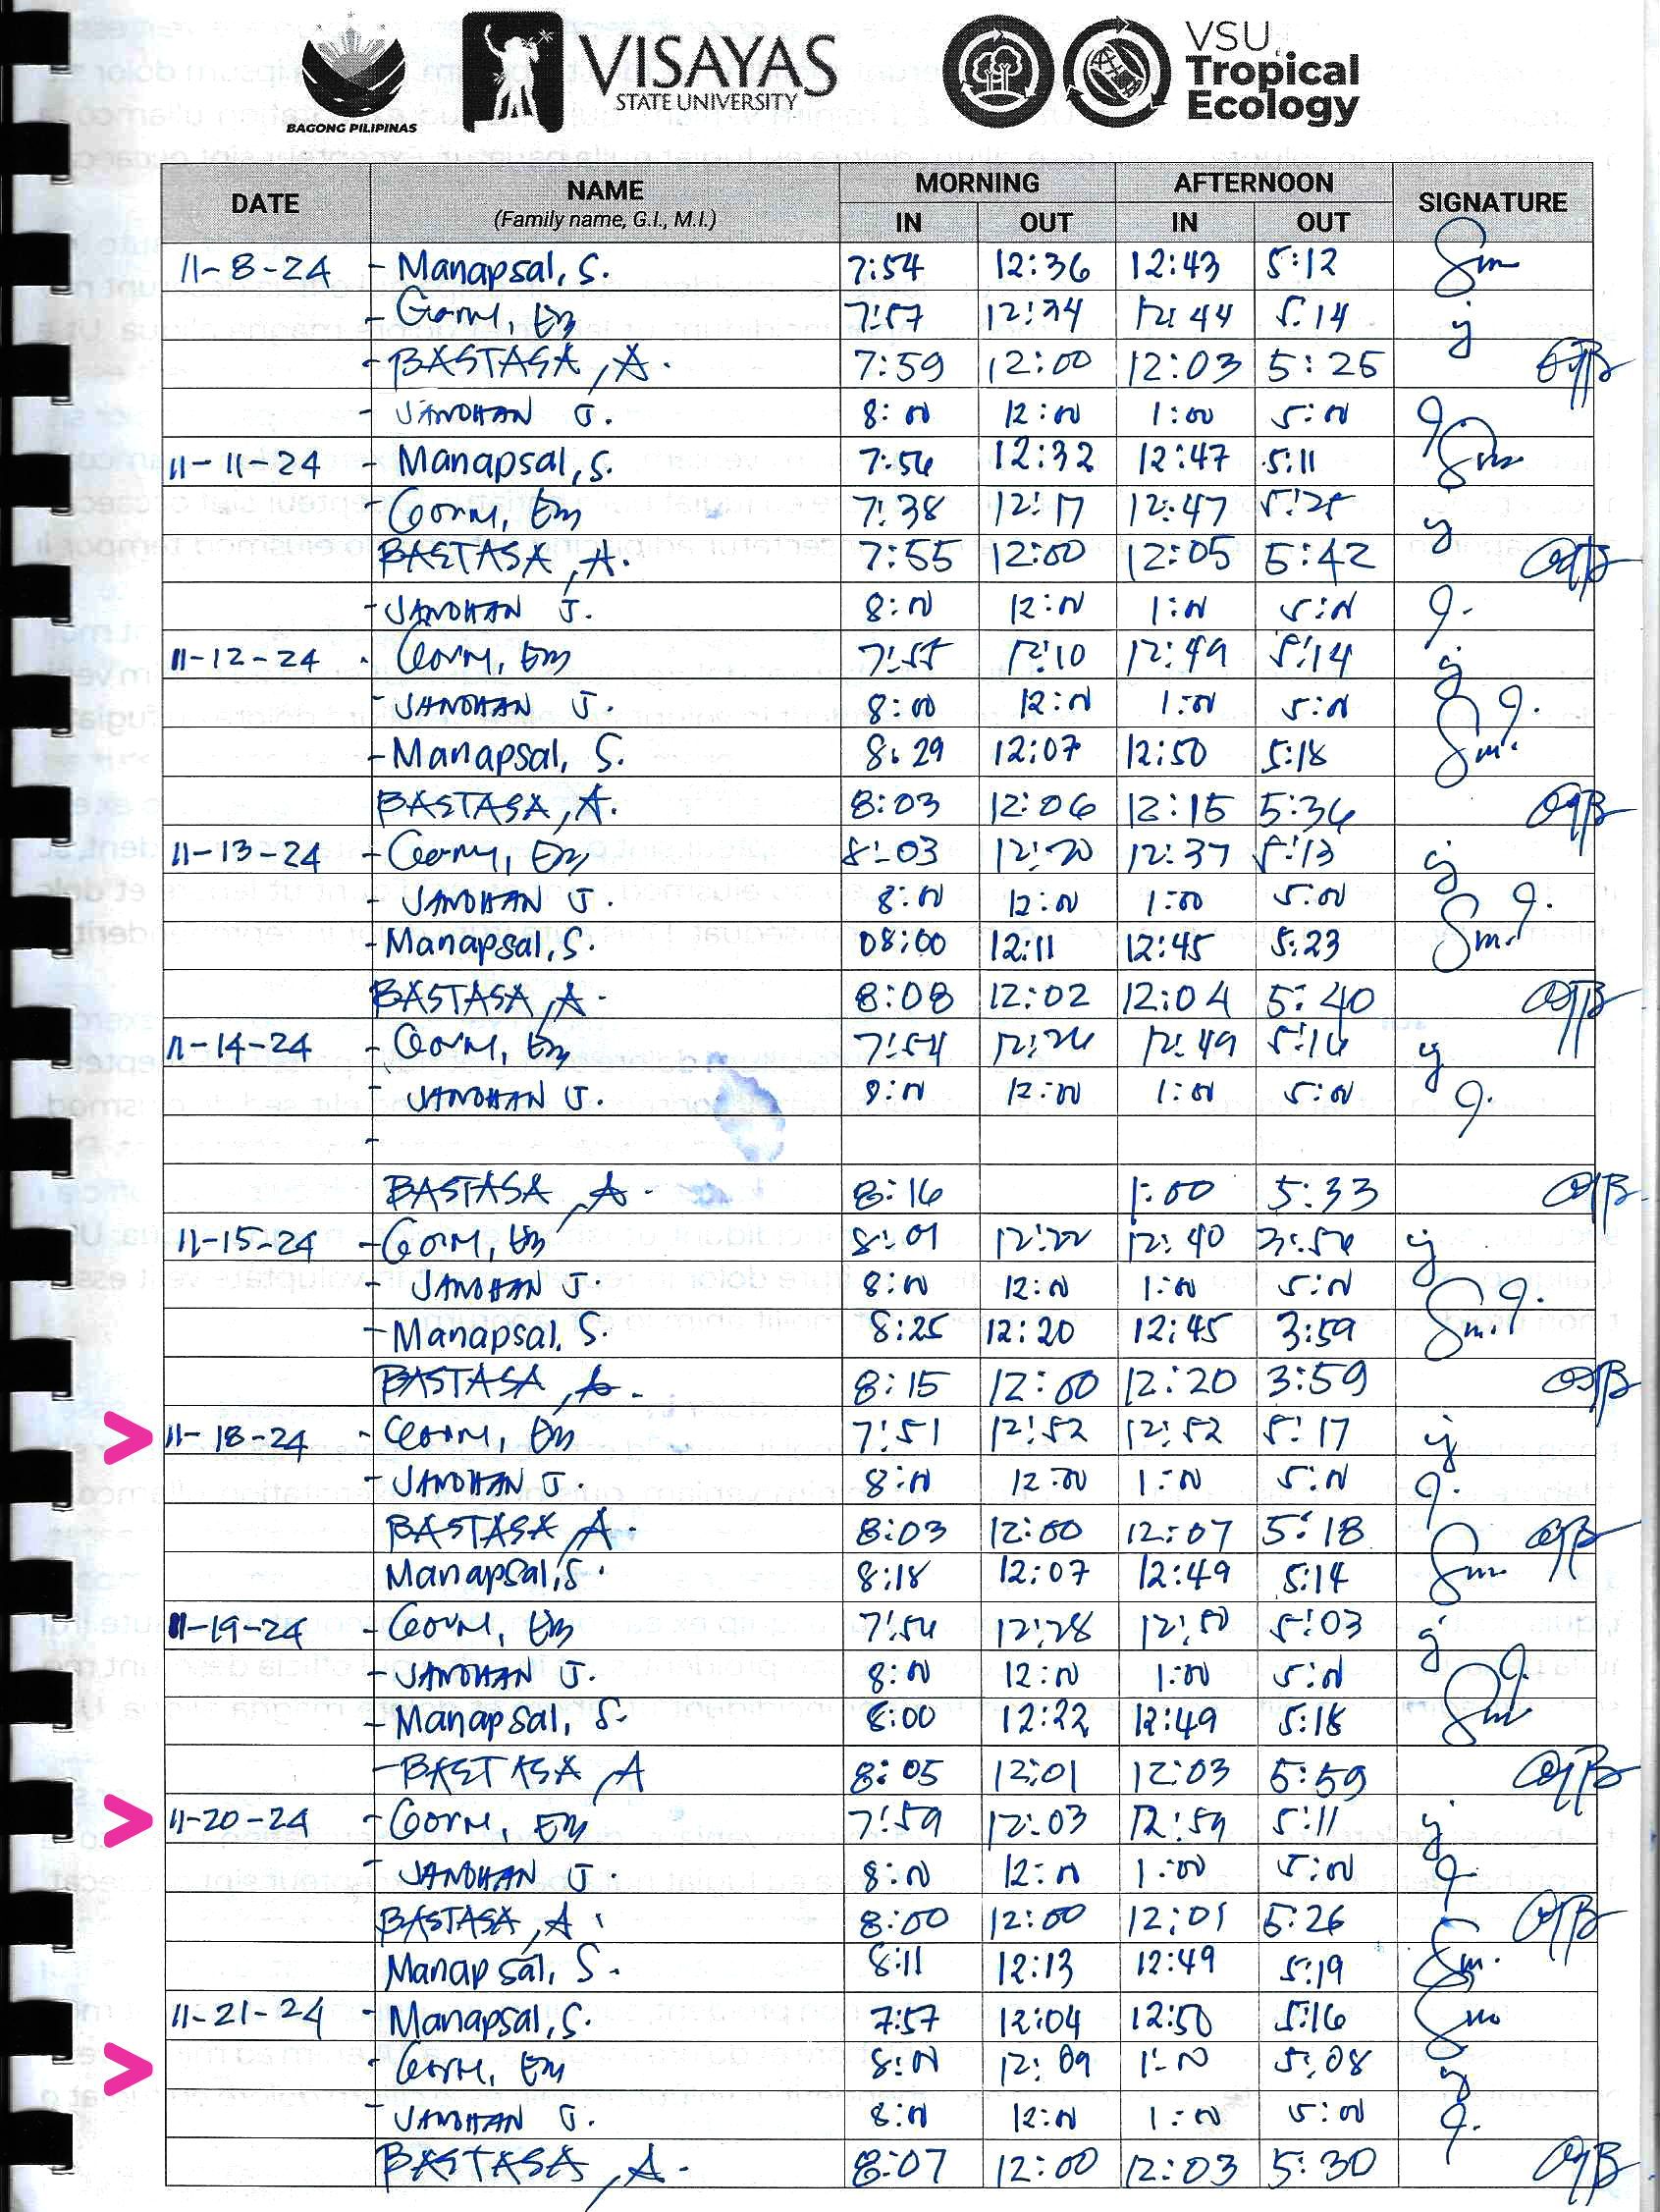 BAGONG PILIPINAS
VISAYAS
STATE UNIVERSITY
VSU
Tropical
Ecology
DATE NAME MORNING AFTERNOON SIGNATURE
(Family name, G.I., M.I.) IN OUT IN OUT
11-8-24 - Manapsal, S. 7:54 12:36 12:43 5:12
7:57 12:34 12:44 5:14
- BASTASA, A. 7:59 12:00 12:03 5:25
- JANDHAN J. 8:00 12:00 1:00 5:00
11-11-24 - Manapsal, S. 7:56 12:32 12:47 5:11
7:38 12:17 12:47 5:25
BASTASA, A. 7:55 12:00 12:05 5:42
- JANDHAN J. 8:00 12:00 1:00 5:00
11-12-24 7:55 12:10 12:49 5:14
- JANDHAN J. 8:00 12:00 1:00 5:00
- Manapsal, S. 8:29 12:07 12:50 5:18
BASTASA, A. 8:03 12:06 12:15 5:36
11-13-24 8:03 12:20 12:37 5:13
- JANDHAN J. 8:00 12:00 1:00 5:00
- Manapsal, S. 08:00 12:11 12:45 5:23
BASTASA, A. 8:08 12:02 12:04 5:40
11-14-24 7:54 12:26 12:49 5:16
- JANDHAN J. 8:00 12:00 1:00 5:00
-
BASTASA, A. 8:16 1:00 5:33
11-15-24 8:01 12:22 12:40 3:56
- JANDHAN J. 8:00 12:00 1:00 5:00
- Manapsal, S. 8:25 12:20 12:45 3:59
BASTASA, A. 8:15 12:00 12:20 3:59
11-18-24 7:51 12:52 12:52 5:17
- JANDHAN J. 8:00 12:00 1:00 5:00
BASTASA, A. 8:03 12:00 12:07 5:18
Manapsal, S. 8:18 12:07 12:49 5:14
11-19-24 7:56 12:28 12:50 5:03
- JANDHAN J. 8:00 12:00 1:00 5:00
- Manapsal, S. 8:00 12:22 12:49 5:18
- BASTASA, A 8:05 12:01 12:03 5:59
11-20-24 7:59 12:03 12:59 5:11
- JANDHAN J. 8:00 12:00 1:00 5:00
BASTASA, A. 8:00 12:00 12:01 5:26
Manapsal, S. 8:11 12:13 12:49 5:19
11-21-24 - Manapsal, S. 7:57 12:04 12:50 5:16
8:00 12:09 1:00 5:08
- JANDHAN J. 8:00 12:00 1:00 5:00
BASTASA, A. 8:07 12:00 12:03 5:30